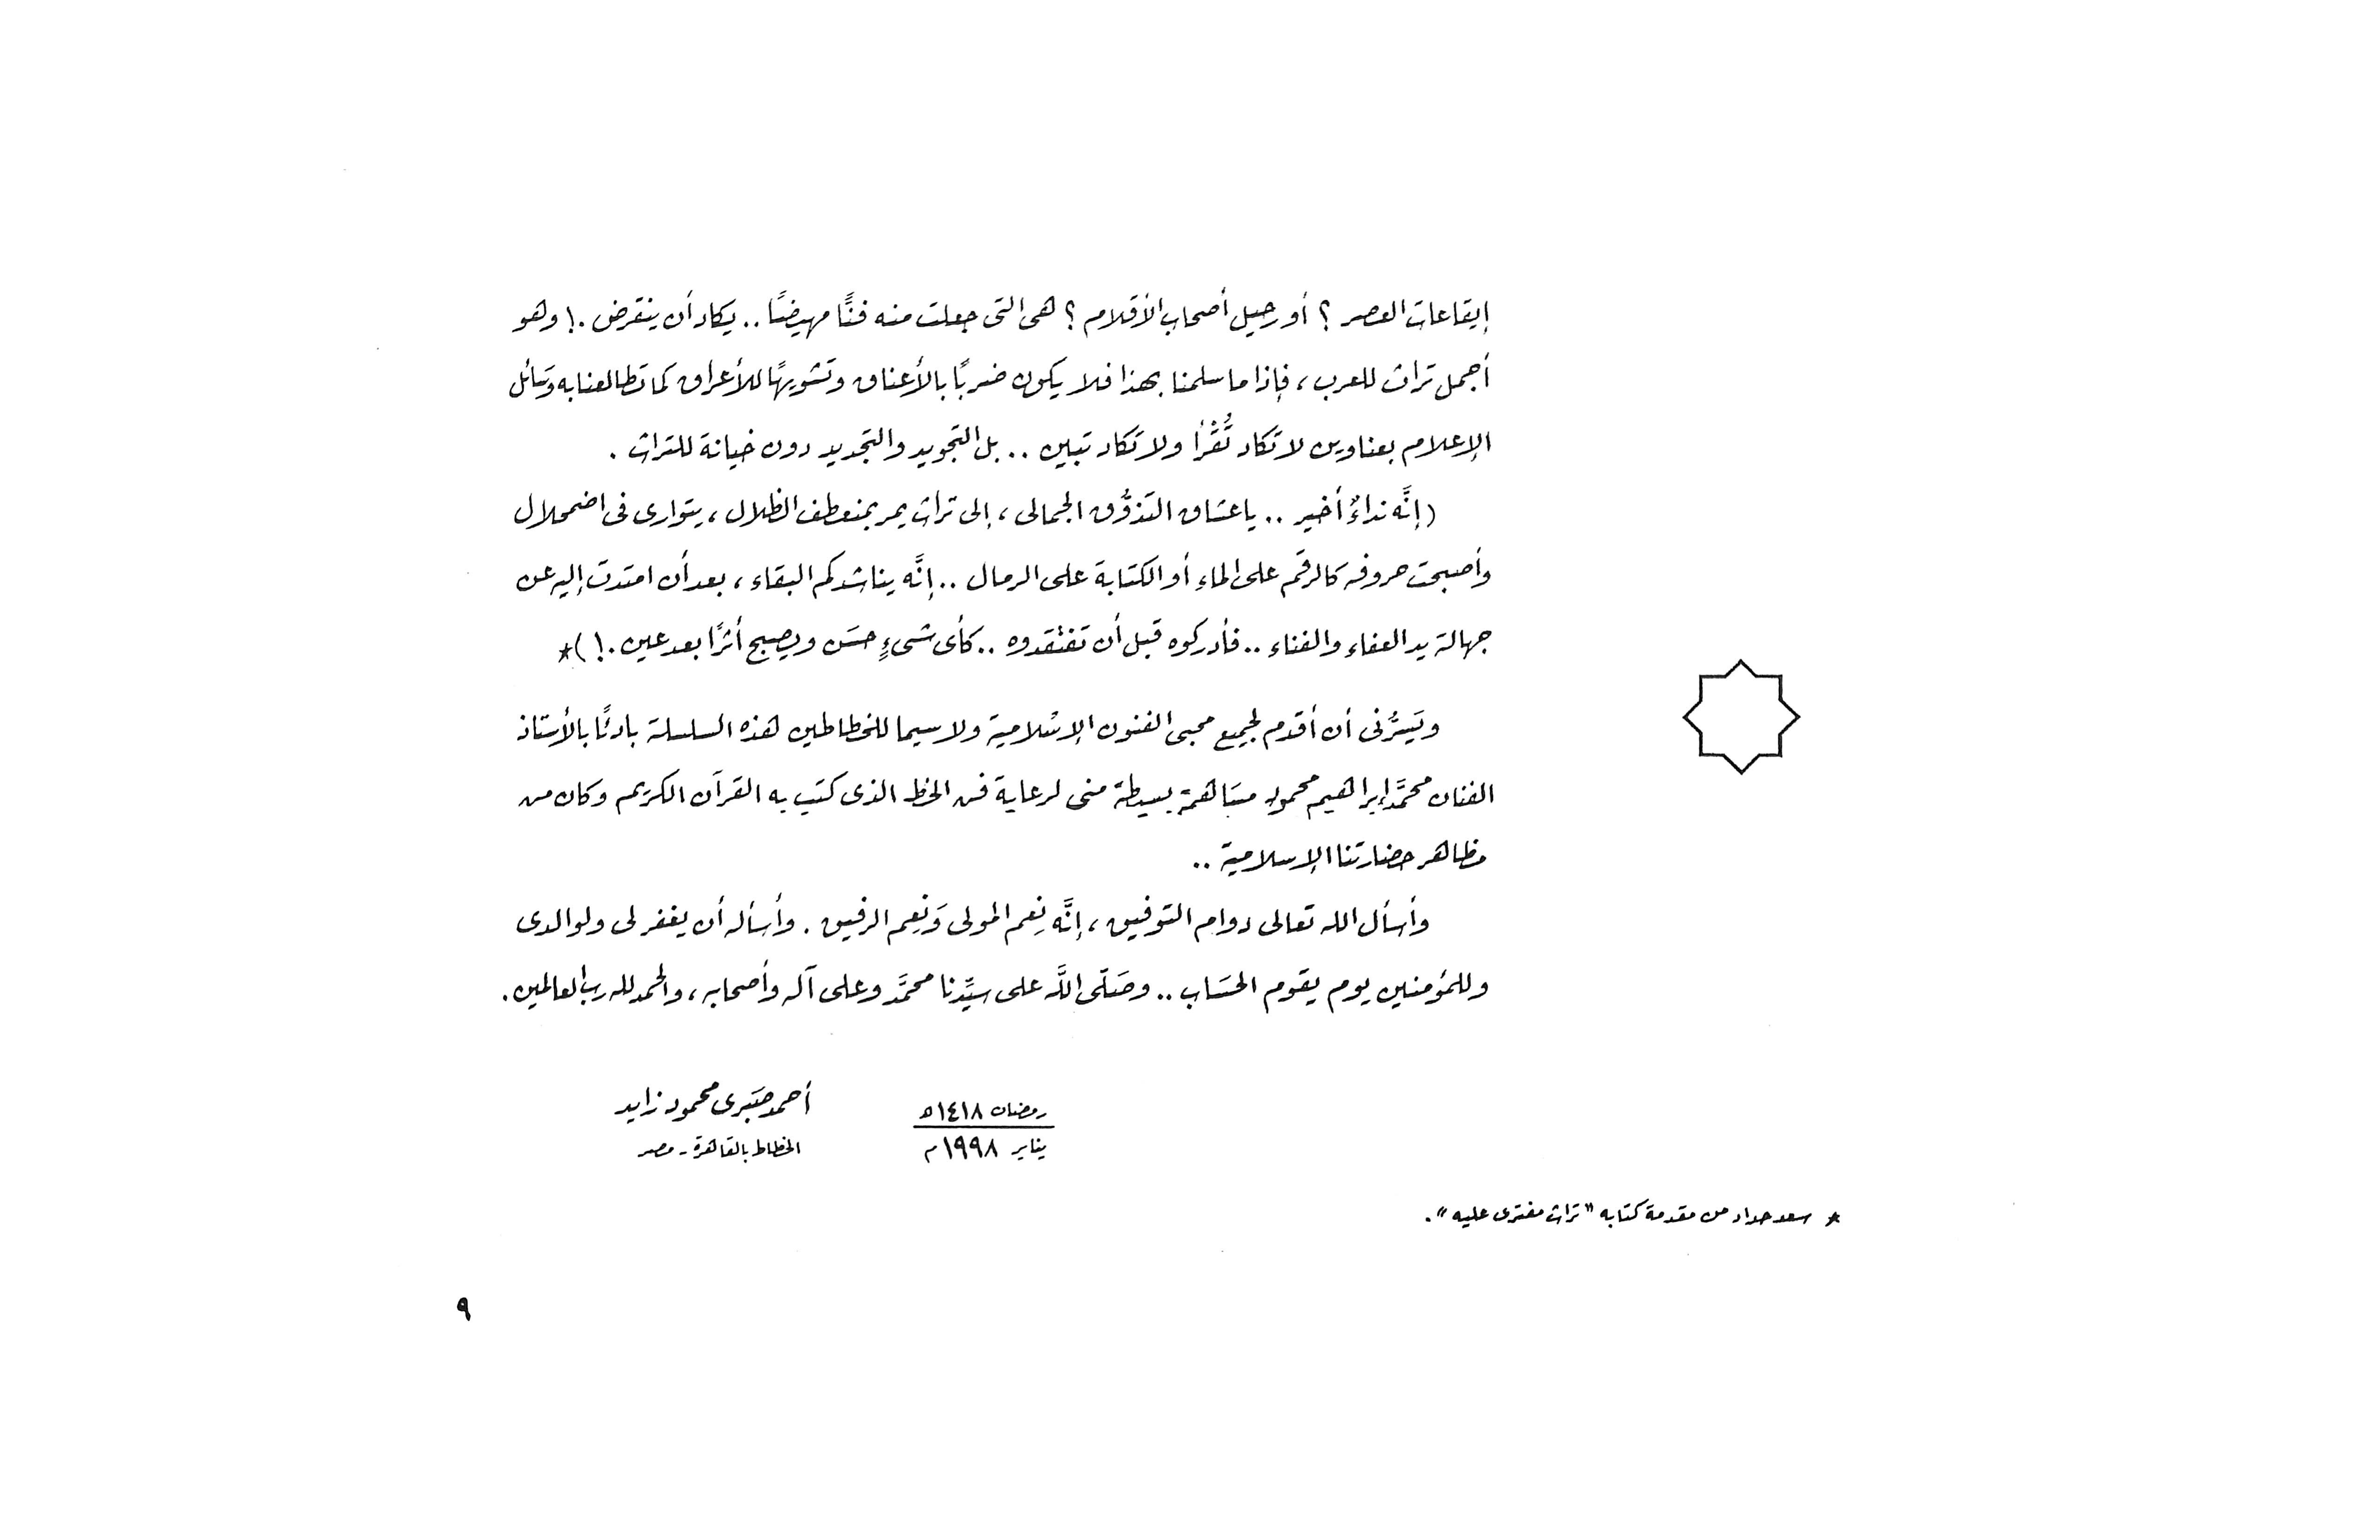 إيقاعات العصر ؟ أو رحيل أصحاب الأقلام ؟ هى التى جعلت منه فنًّا مهيضًا .. يكاد أن ينقرض .! وهو
أجمل تراث للعرب ، فإذا ما سلمنا بهذا فلا يكون ضربًا بالأعناق وتشويهًا للأعراق كما تطالعنا به وسَائل
الإعلام بعناوين لا تكاد تُقْرأ ولا تكاد تبين .. بل التجويد والتجديد دون خيانة للتراث .
( إنَّه نداءٌ أخير .. يا عشاق التذوُّق الجمالى ، إلى تراث يمر بمنعطف الظلال ، يتوارى فى اضمحلال
وأصبحت حروفه كالرقم على الماء أو الكتابة على الرمال .. إنَّه يناشدكم البقاء ، بعد أن امتدت إليه عن
جهالة يد العفاء والفناء .. فأدركوه قبل أن تفتقدوه .. كأى شىءٍ حسَن ويصبح أثرًا بعد عين .! )*
ويَسرُّنى أن أقدم لجميع محبى الفنون الإسْلامية ولاسيما للخطاطين هذه السلسلة بادئًا بالأستاذ
الفنان محمَّد إبراهيم محمود مسَاهمة بسيطة منى لرعاية فن الخط الذى كتب به القرآن الكريم وكان من
مظاهر حضارتنا الإسلامية ..
وأسأل الله تعالى دوام التوفيق ، إنَّه نِعم المولى وَنِعم الرفيق . وأسأله أن يغفر لى ولوالدى
وللمؤمنين يوم يقوم الحسَاب .. وصَلّى اللَّه على سيِّدنا محمَّد وعلى آله وأصحابه ، والحمد لله رب العالمين .
أحمد صَبرى محمود زايد
الخطاط بالقاهرة - مصر
رمضان ١٤١٨ه
يناير ١٩٩٨م
* سعد حداد من مقدمة كتابه " تراث مفترى عليه " .
٩